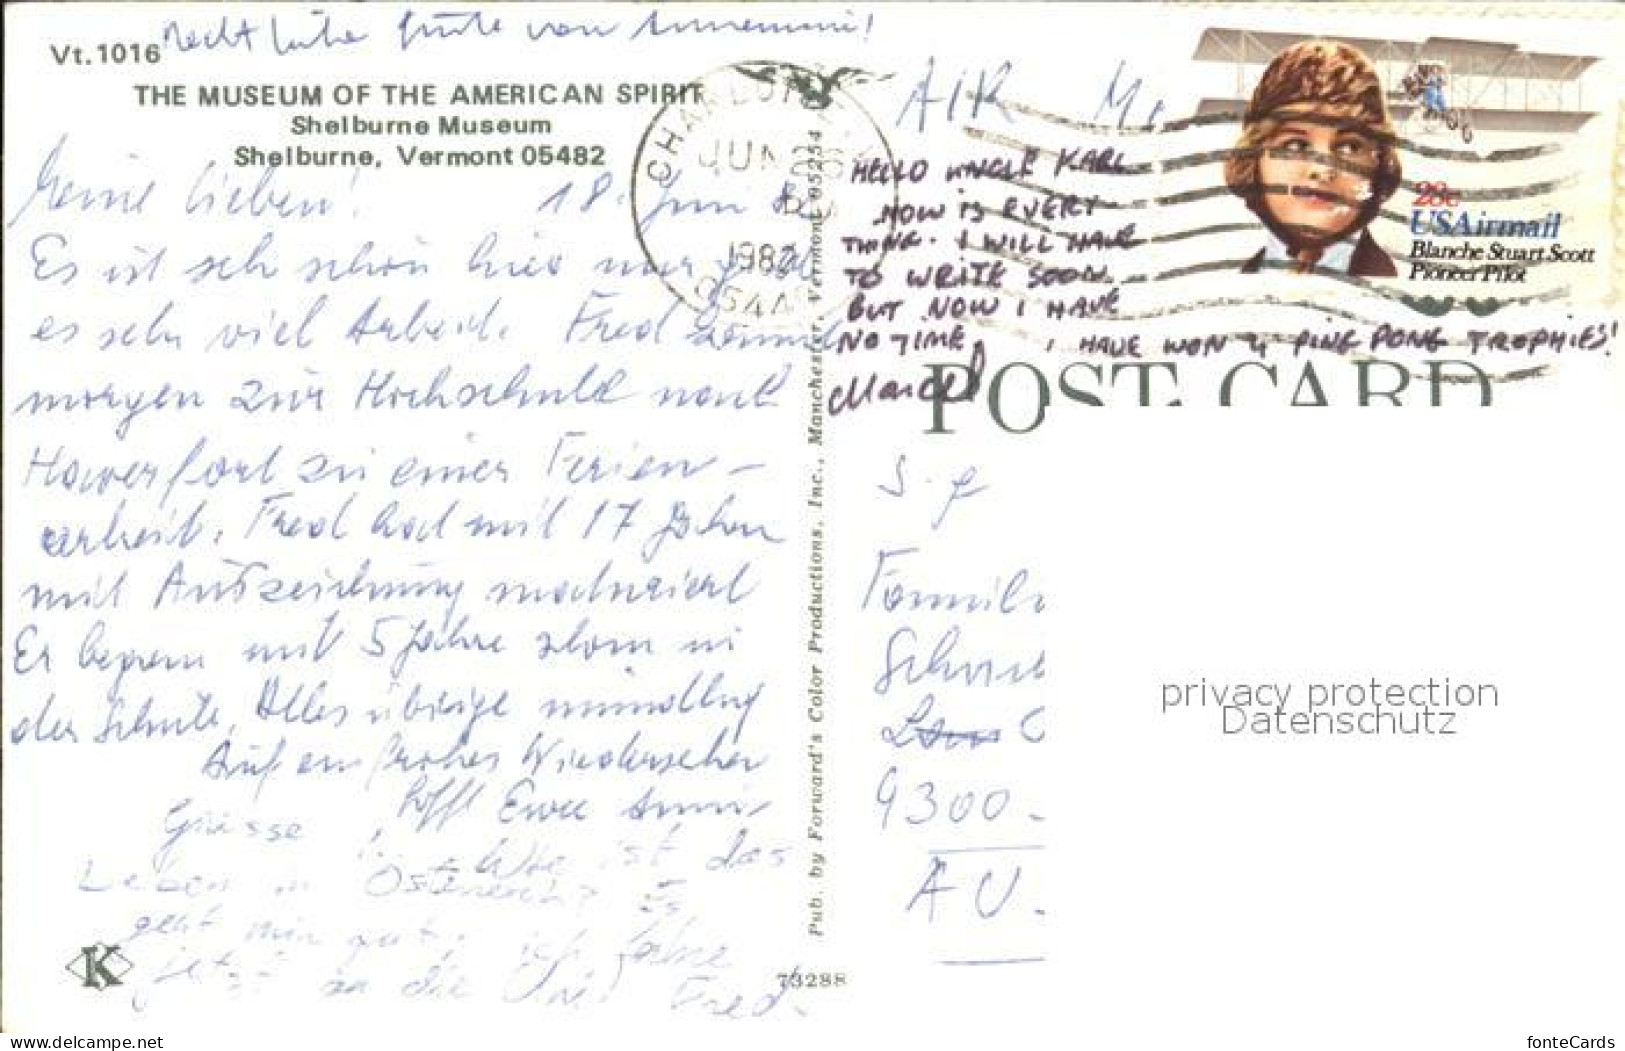 Recht liebe Grüße von Annemarie!
Vt. 1016
THE MUSEUM OF THE AMERICAN SPIRIT
Shelburne Museum
Shelburne, Vermont 05482
Meine Lieben! 18. Juni
Es ist sehr schön hier nur
es sehr viel Arbeit. Fred kommt
morgen zur Hochschule nach
Haverford zu einer Ferien-
arbeit. Fred hat mit 17 Jahren
mit Auszeichnung maturiert
Er begann mit 5 Jahre schon in
der Schule. Alles übrige mündlich
Auf ein frohes Wiedersehen
hofft Eure Anni
Grüsse, Wie ist das
Leben in Österreich? Es
geht mir gut, ich fahre
jetzt an die Uni Fred.
K
73288
Pub. by Forward's Color Productions, Inc., Manchester, Vermont 05254
JUN
1982
AIR
HELLO UNCLE KARL
HOW IS EVERY
THING. I WILL HAVE
TO WRITE SOON.
BUT NOW I HAVE
NO TIME, I HAVE WON 4 PING PONG TROPHIES!
Marcel
28c
USAirmail
Blanche Stuart Scott
Pioneer Pilot
POST CARD
S. g
Famili
9300
AU
privacy protection
Datenschutz
www.delcampe.net
fonteCards